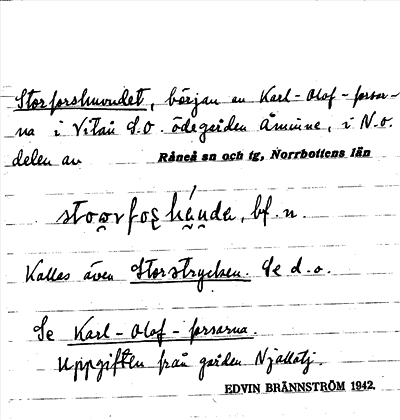 Storforshuvudet, början av Karl-Olof-forsar-
na i Vitån S.O. ödegården Åminne, i N.O.
delen av Råneå sn och tg, Norrbottens län
bf. n.
Kallas även Storstrycken. Se d.o.
Se Karl-Olof-forsarna.
Uppgiften från gården Njallatj.
EDVIN BRÄNNSTRÖM 1942.